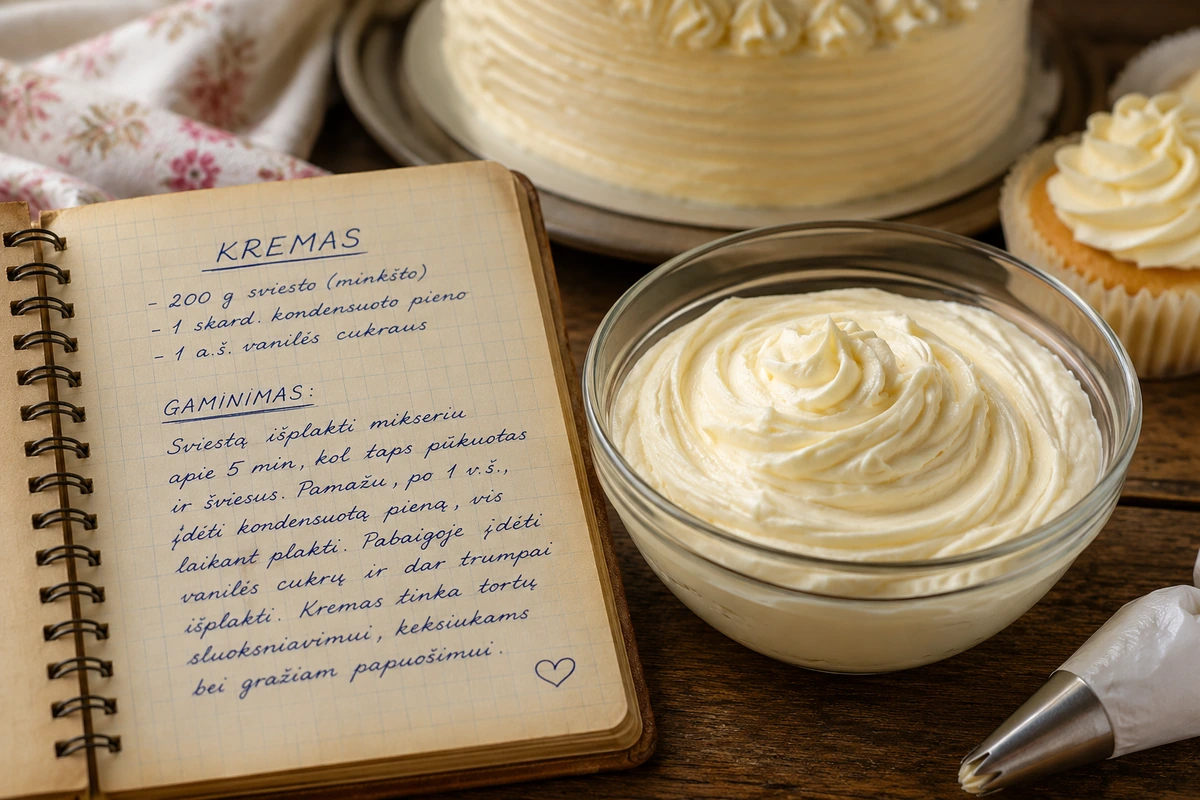 KREMAS
- 200 g sviesto (minkšto)
- 1 skard. kondensuoto pieno
- 1 a.š. vanilės cukraus
GAMINIMAS:
Sviestą išplakti mikseriu
apie 5 min, kol taps pūkuotas
ir šviesus. Pamažu, po 1 v.š.,
įdėti kondensuotą pieną, vis
laikant plakti. Pabaigoje įdėti
vanilės cukrų ir dar trumpai
išplakti. Kremas tinka tortų
sluoksniavimui, keksiukams
bei gražiam papuošimui.